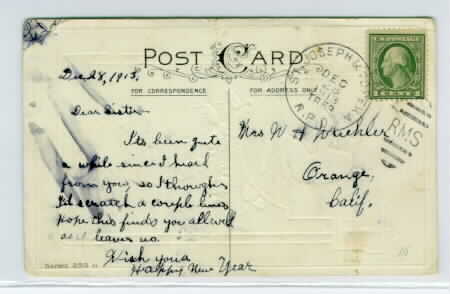 POST CARD
Dec 28, 1915.
FOR CORRESPONDENCE
FOR ADDRESS ONLY
Dear Sister
Its been quite
a while since I heard
from you, so I thought
I'd scratch a couple lines
Hope this finds you all well
as it leaves us.
Wish you a
Happy New Year
Mrs W H
Orange,
Calif.
ST. JOSEPH &
DEC
R.P.O.
RMS
U.S. POSTAGE
Series
15